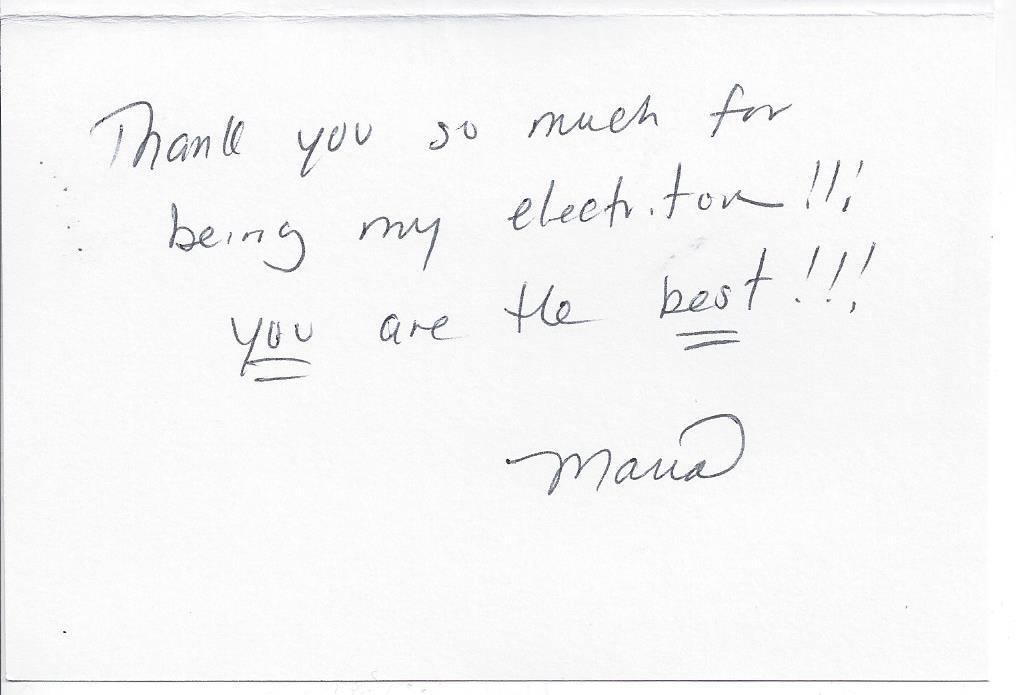 Thank you so much for
being my electriton !!!
you are the best !!!
Maria